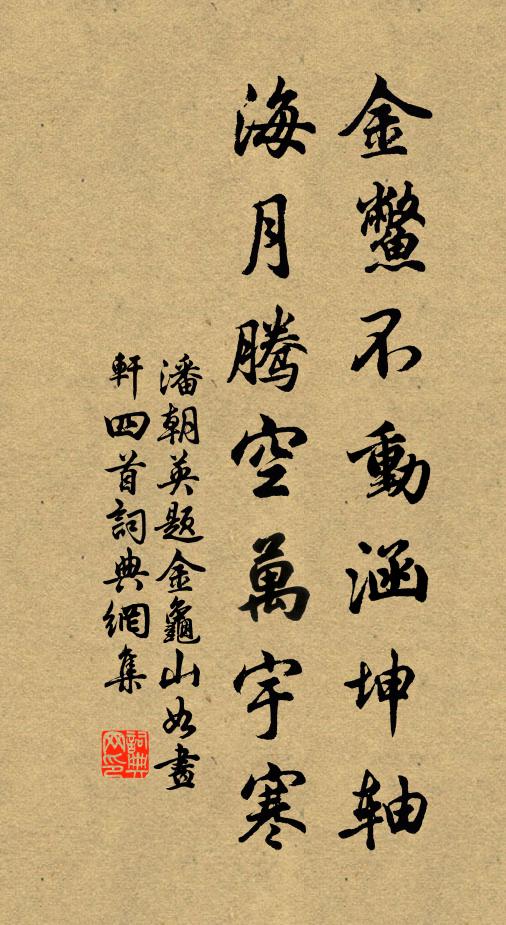 金鱉不動涵坤軸
海月騰空萬宇寒
潘朝英題金龜山如畫
軒四首詞典網集
詞典
网印